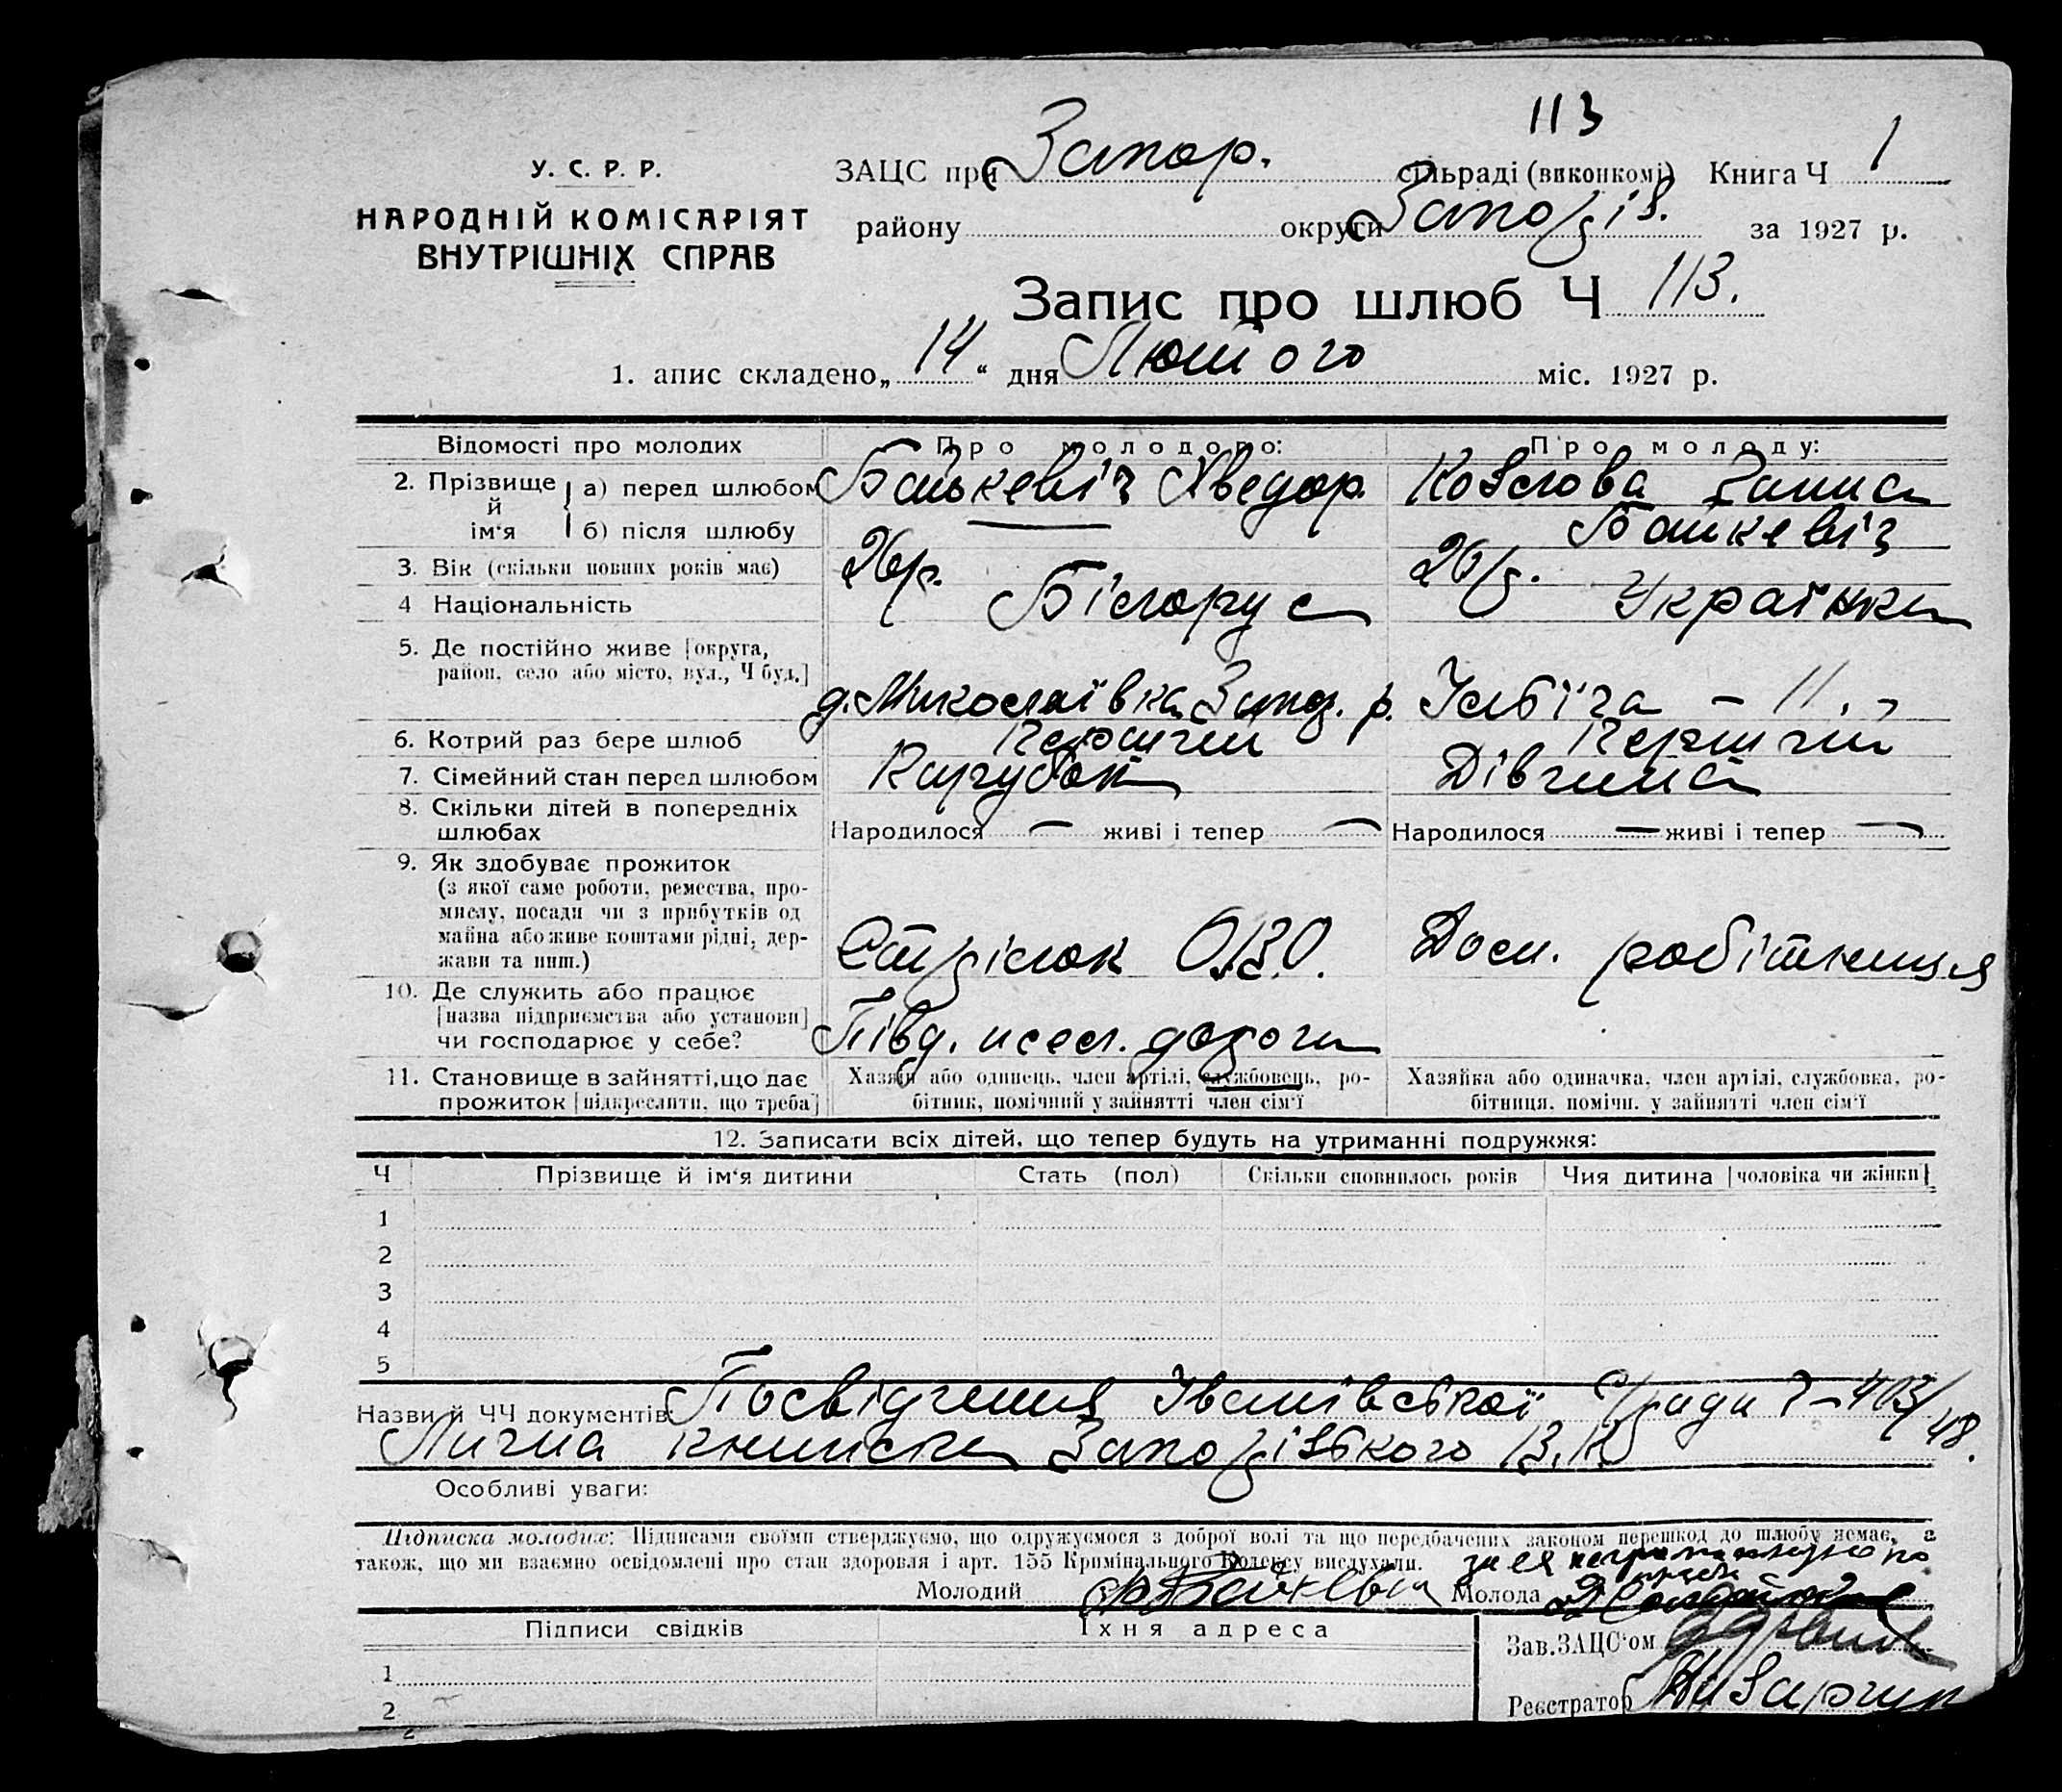 113
У. С. Р. Р.
НАРОДНІЙ КОМІСАРІЯТ
ВНУТРІШНІХ СПРАВ
ЗАЦС при Запор. сільраді (виконкомі) Книга Ч 1
району округи Запоріз. за 1927 р.
Запис про шлюб Ч 113.
1. апис складено „ 14 “ дня Лютого міс. 1927 р.
Відомості про молодих Про молодого: Про молоду:
2. Прізвище й ім‘я а) перед шлюбом Банькевіч Хведор Козлова Ганна
б) після шлюбу Банкевіч
3. Вік (скільки повних років має) 26 р. 26 р.
4 Національність Білорус Українка
5. Де постійно живе [округа,
район, село або місто, вул., Ч буд.] д. Миколаївка Запор. р. Ілліча – 11.
6. Котрий раз бере шлюб Перший Перший
7. Сімейний стан перед шлюбом Парубок Дівчина
8. Скільки дітей в попередніх
шлюбах Народилося — живі і тепер — Народилося — живі і тепер —
9. Як здобуває прожиток
(з якої саме роботи, ремества, про-
мислу, посади чи з прибутків од
майна або живе коштами рідні, дер-
жави та инш.) Стрілок О.В.О. Дом. робітниця
10. Де служить або працює
[назва підприємства або установи]
чи господарює у себе? Півд. дорога
11. Становище в зайнятті, що дає
прожиток [підкреслити, що треба]
Хазяїн або одинець, член артілі, службовець, ро-
бітник, помічний у зайнятті член сім‘ї
Хазяйка або одиначка, член артілі, службовка, ро-
бітниця, помічн. у зайнятті член сім‘ї
12. Записати всіх дітей, що тепер будуть на утриманні подружжя:
Ч Прізвище й ім‘я дитини Стать (пол) Скільки сповнилось років Чия дитина [чоловіка чи жінки]
1
2
3
4
5
Назви й ЧЧ документів Посвідчення Іванівської с/ради Ч – 403/48.
Лична книжка Запорізького В.К.
Особливі уваги:
Підписка молодих: Підписами своїми стверджуємо, що одружуємося з доброї волі та що передбачених законом перешкод до шлюбу немає, а
також, що ми взаємно освідомлені про стан здоровля і арт. 155 Кримінального Кодексу вислухали.
Молодий Молода
Підписи свідків Їхня адреса
Зав. ЗАЦС‘ом
1
Реєстратор
2